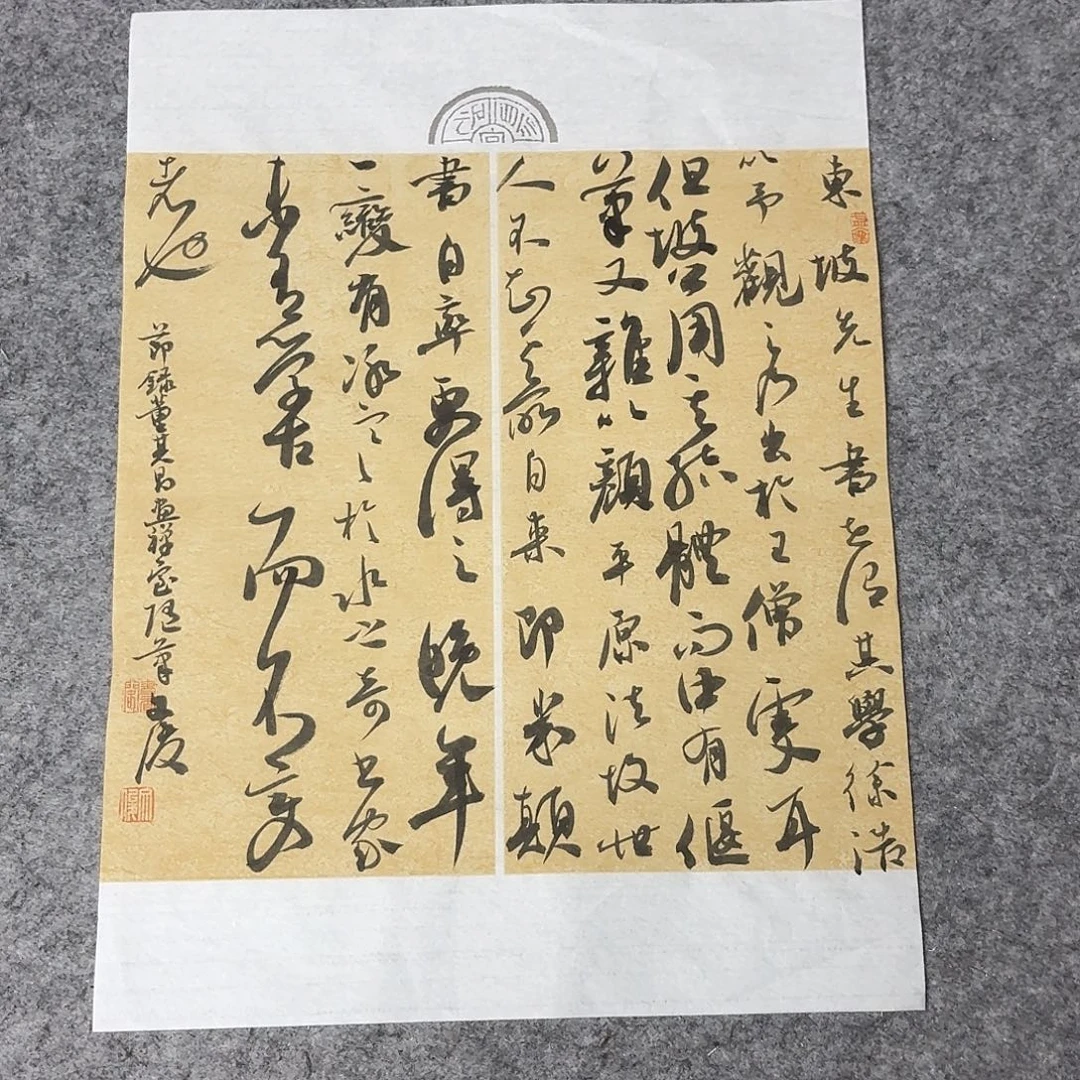 東坡先生書世謂其學徐浩
以予觀之乃出於王僧虔耳
但坡公用其結體而中有偃
筆又雜以顏平原法故世
人不知其所自來即米顛
書自率更得之晚年
一變有冰寒於水之奇書家
未有學古而不變
者也
節錄董其昌畫禪室隨筆